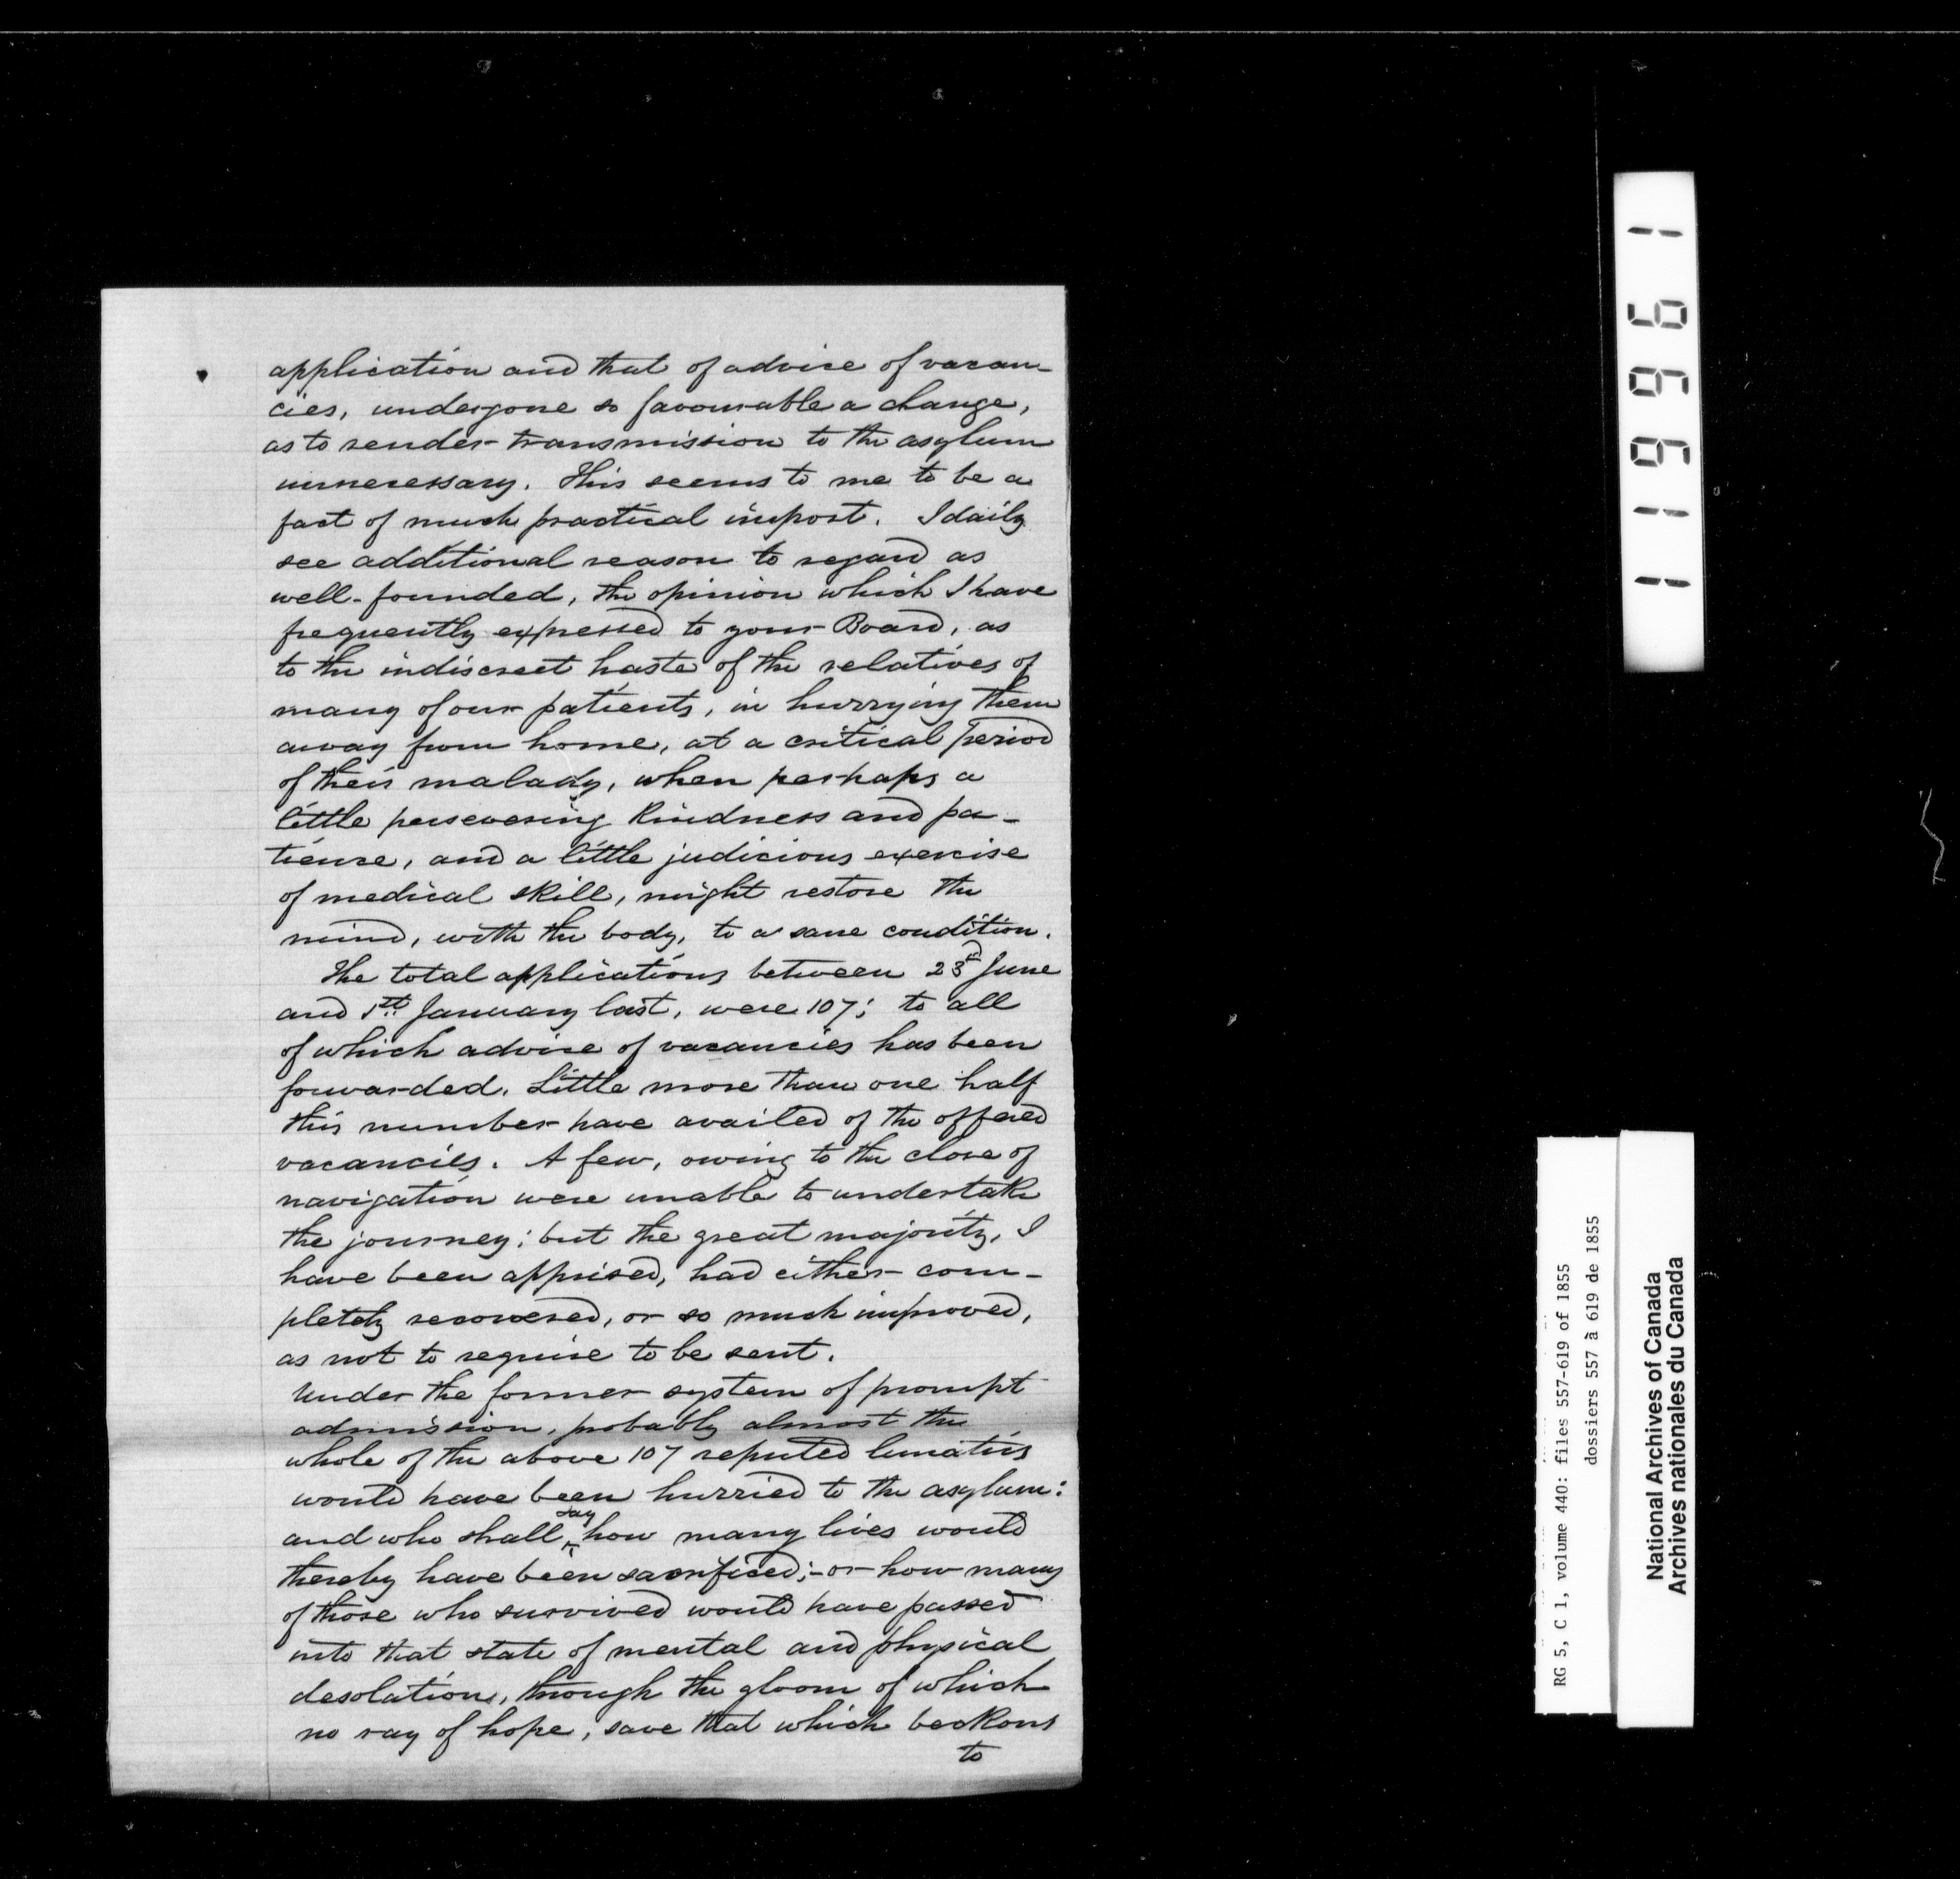 application and that of advice of vacan-
cies, undergone so favourable a change,
as to render transmission to the asylum
unnecessary. This seems to me to be a
fact of much practical import. I daily
see additional reason to regard as
well-founded, the opinion which I have
frequently expressed to your Board, as
to the indiscreet haste of the relatives of
many of our patients, in hurrying them
away from home, at a critical period
of their malady, when perhaps a
little persevering kindness and pa-
tience, and a little judicious exercise
of medical skill, might restore the
mind, with the body, to a sane condition.
The total applications between 23d June
and 1st January last, were 107; to all
of which advice of vacancies has been
forwarded. Little more than one half
this number have availed of the offered
vacancies. A few, owing to the close of
navigation were unable to undertake
the journey; but the great majority, I
have been apprised, had either com-
pletely recovered, or so much improved,
as not to require to be sent.
Under the former system of prompt
admission, probably almost the
whole of the above 107 reputed lunatics
would have been hurried to the asylum:
and who shall say how many lives would
thereby have been sacrificed;- or how many
of those who survived would have passed
into that state of mental and physical
desolation, through the gloom of which
no ray of hope, save that which beckons
to
119961
RG 5, C 1, volume 440: files 557-619 of 1855
dossiers 557 à 619 de 1855
National Archives of Canada
Archives nationales du Canada